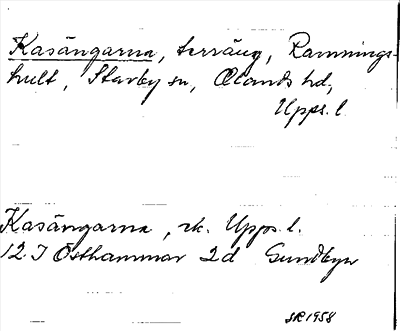 Kasängarna, terräng, Ramnings-
hult, Stavby sn, Olands hd,
Upps. l.
Kasängarna, rk. Upps. l.
12. I Östhammar 2d Sundbyn
SR 1958